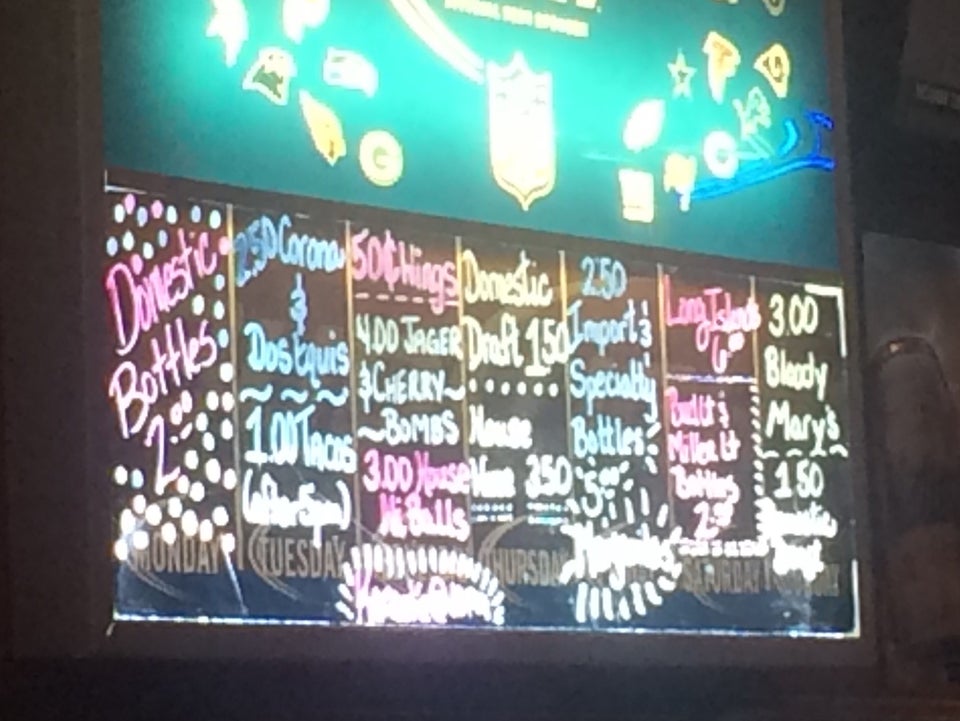 Domestic
Bottles
2.00
MONDAY
2.50 Corona
&
Dos Equis
1.00 Tacos
(after 5pm)
TUESDAY
50¢ Wings
4.00 JAGER
& CHERRY
BOMBS
3.00 House
Hi Balls
Karaoke 9pm
Domestic
Draft 1.50
House
Wine 3.50
THURSDAY
2.50
Import &
Specialty
Bottles
Margaritas
Long Islands
Bud Lt &
Miller Lt
Bottles
SATURDAY
3.00
Bloody
Mary's
1.50
Domestic
Draft